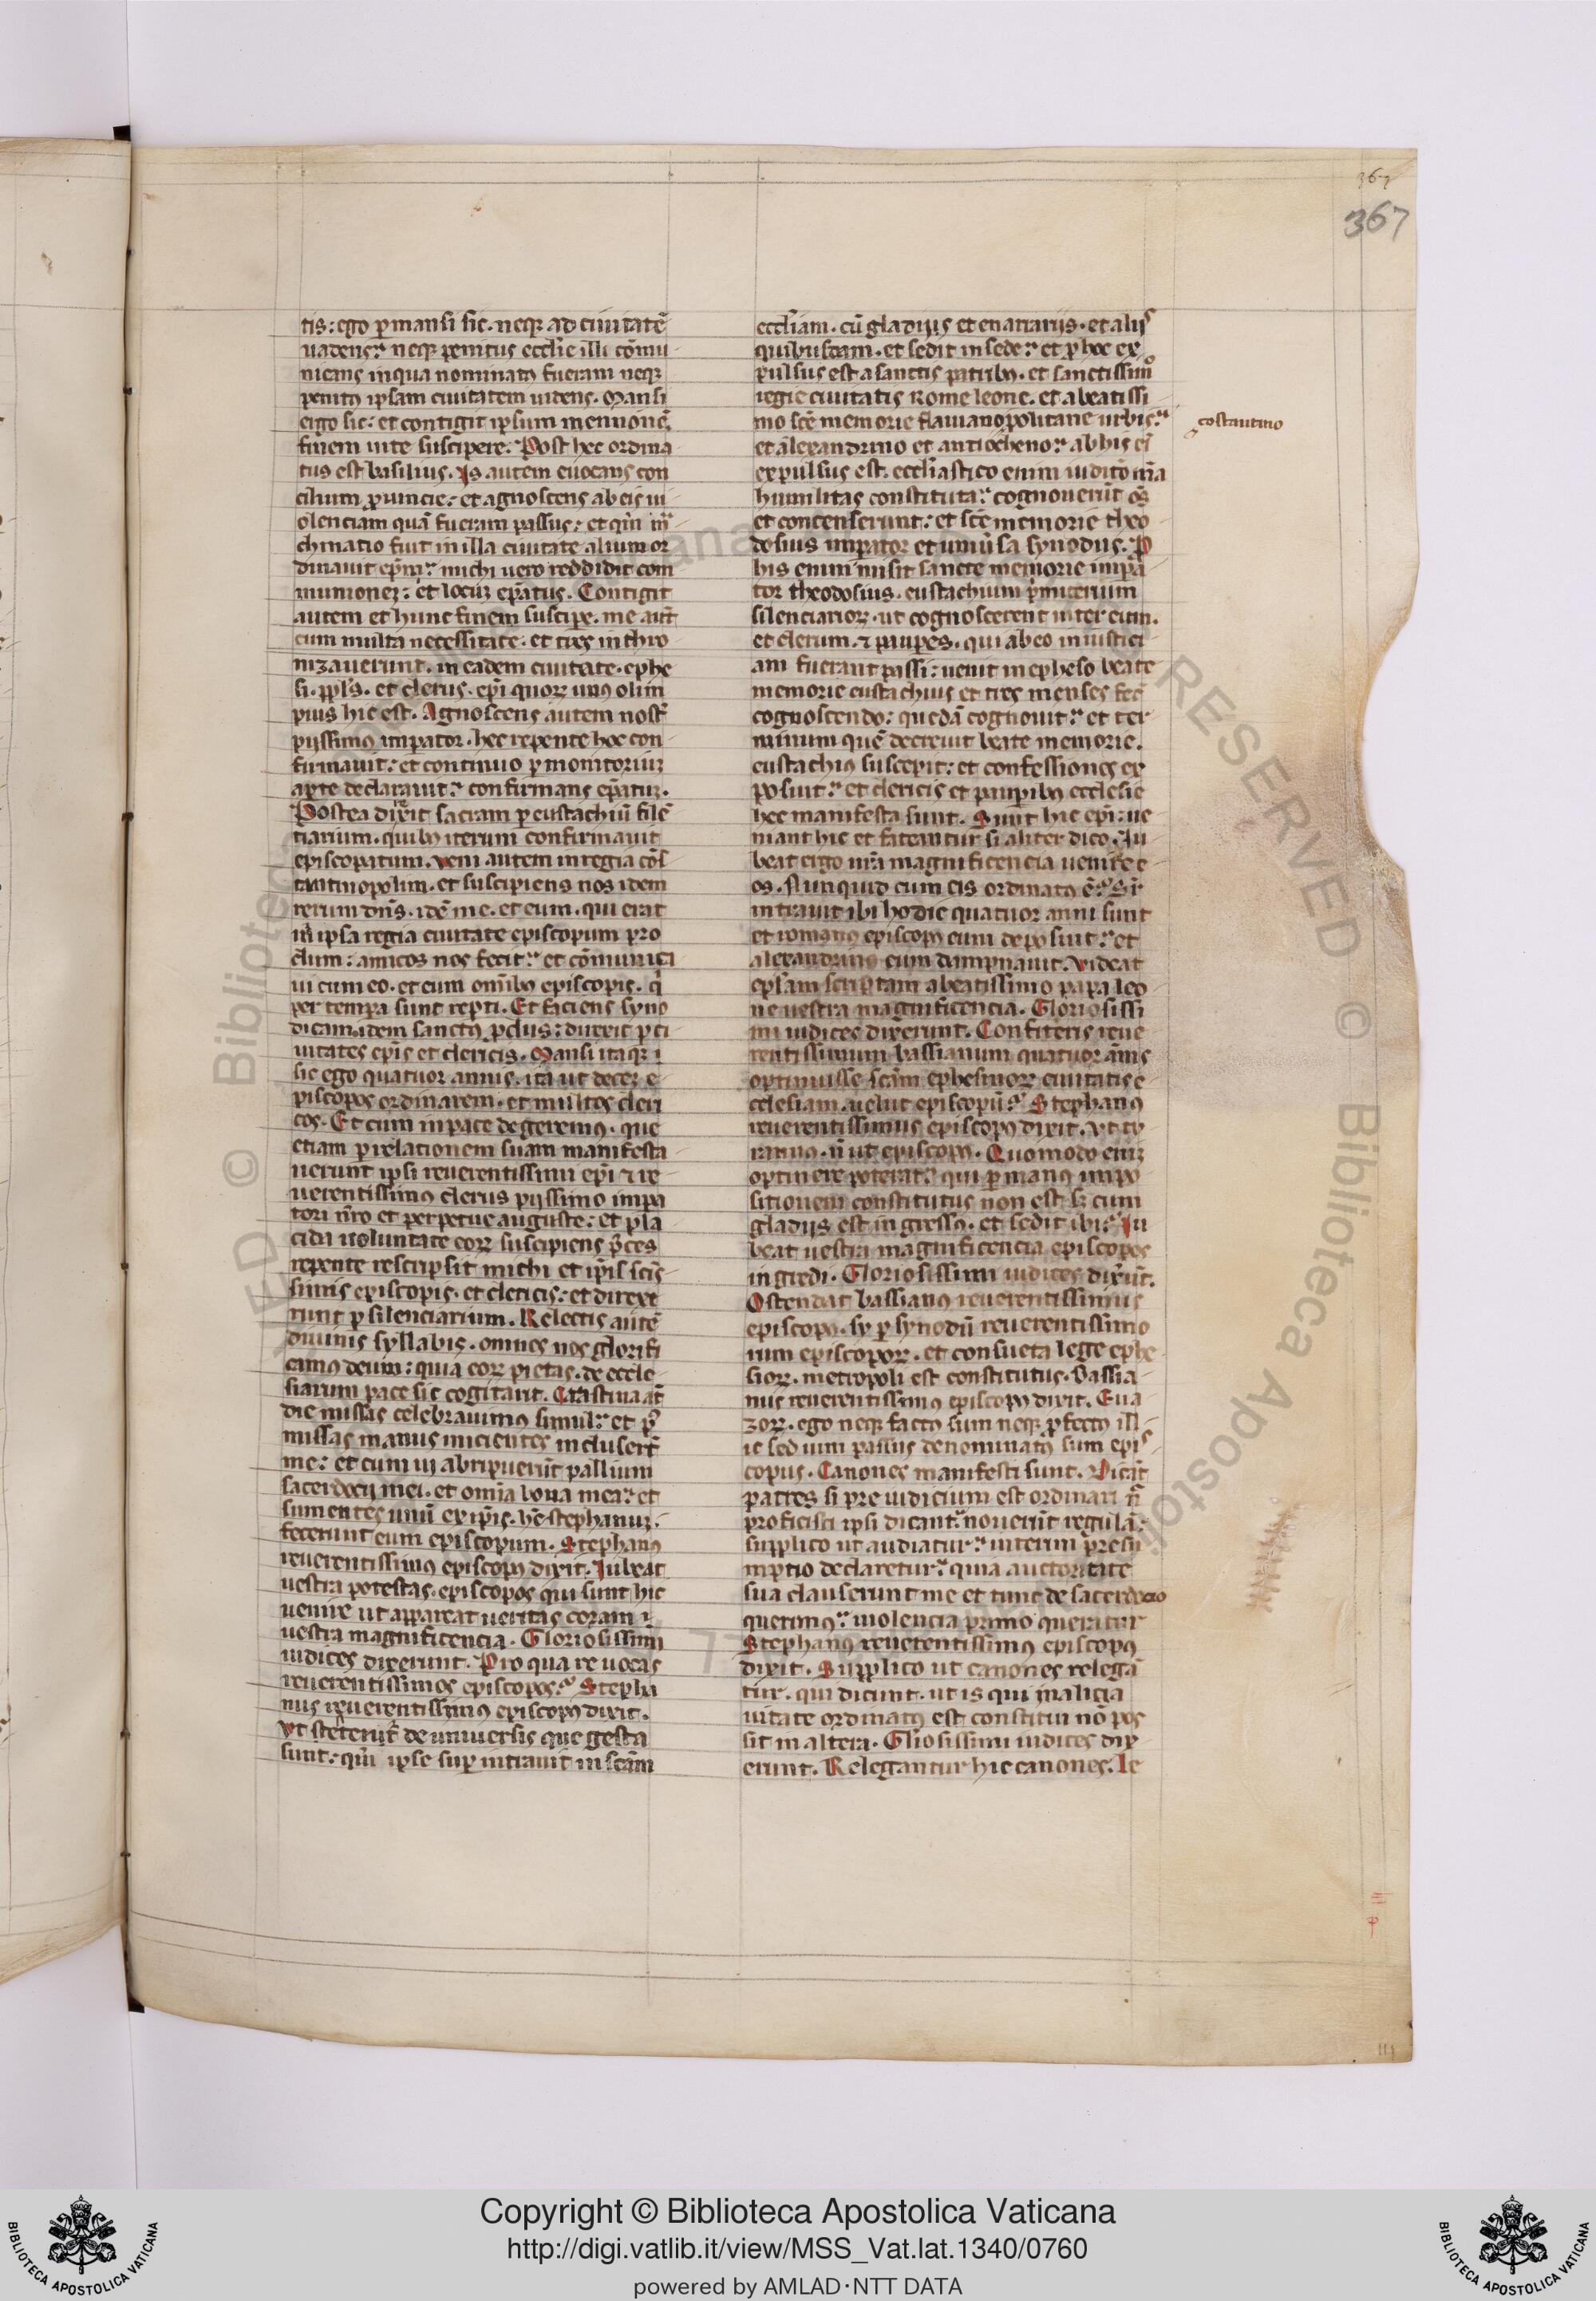 367
367
tis: ego ꝑmansi sic. neqꝫ ad ciuitatē
uadens: neqꝫ penitus eccl̄ie illi cōmu
nicans in qua nominatꝰ fueram neqꝫ
penitꝰ ipsam ciuitatem uidens. Mansi
ergo sic: et contigit ipsum mennonē
finem uite suscipere. Post hec ordina
tus est basilius. Is autem euocans con
cilium ꝓuincie: et agnoscens ab eis ui
olenciam quā fueram passus: et qm̄ in
thronizatio fuit in illa ciuitate alium or
dinauit ep̄m: michi uero reddidit com
munionez: et locuꝫ ep̄atus. Contigit
autem et hunc finem suscipe. me aut̄
cum multa necessitate. et tres inthro
nizauerunt. in eadem ciuitate. ephe
si. ppl̄s. et clerus. ep̄i quorꝫ unus olim
pius hic est. Agnoscens autem nost̄
pijssimꝰ imperator. hec repente hoc con
firmauit: et continuo ꝑ monitoriuꝫ
aꝑte declarauit: confirmans ep̄atuꝫ.
Postea direxit sacram ꝑ eustachiū silē
tiarium. quibꝰ iterum confirmauit
episcopatum. Veni autem in regia cōs
tantinopolim. et suscipiens nos idem
rerum dn̄s. idē me. et eum. qui erat
in ipsa regia ciuitate episcopum pro
clum: amicos nos fecit: et cōmunica
ui cum eo. et cum omībꝰ episcopis. qͥ
per tempa sunt repti. Et faciens syno
dicam idem sanctꝰ ꝓclus: direxit ꝑ ci
uitates ep̄is et clericis. Mansi itaqꝫ ī
sic ego quatuor annis. ita ut deceꝫ e
piscopos ordinarem. et multos cleri
cos. Et cum in pace degeremꝰ. que
etiam ꝑ relationem suam manifesta
uerunt ipsi reuerentissimi ep̄i ⁊ re
uerentissimꝰ clerus pijssimo impa
tori nr̄o et perpetue auguste: et pla
cida uoluntate eorꝫ suscipiens p̄ces
repente rescripsit michi et ip̄is scīs
simis episcopis. et clericis: et direxe
runt ꝑ silenciarium. Relectis autē
diuinis syllabis. omnes nos glorifi
camꝰ deum: quia eorꝫ pietas. de eccle
siarum pace sic cogitant. Crastina at̄
die missas celebrauimꝰ simul: et pꝰ
missas manus inicientes incluserūt
me: et cum ui abripuerūt pallium
sacerdocij mei. et omīa bona mea: et
sumentes unū ex ip̄is. hē stephanuꝫ.
fecerunt eum episcopum. Stephanꝰ
reuerentissimꝰ episcopꝰ dixit. Iubeat
uestra potestas. episcopos qui sunt hic
uenire ut appareat ueritas coram ī
uestra magnificencia. Gloriosissimi
iudices dixerunt. Pro qua re uocas
reuerentissimos episcopos: Stepha
nus reuerentissimꝰ episcopꝰ dixit.
Vt steterint de uniuersis que gesta
sunt: qm̄ ipse suꝑ intrauit in scām
eccl̄iam. cū gladijs et enatiarijs. et alijs
quibusdam. et sedit in sede: et ꝓ hoc ex
pulsus est a sanctis patribꝰ. et sanctissimo
regie ciuitatis Rome leone. et a beatissi
mo scē memorie flauiano politane urbis:
costantino
et alexandrino et antiocheno: ab his ei
expulsus est. eccl̄iastico enim iuditō nr̄a
humilitas constituta: cognouerūt oēs
et concenserunt: et scē memorie theo
dosius imperator et uniuersa synodus. P
his enim misit sancte memorie impa
tor theodosius. eustachium p̄micerium
silenciariorꝫ. ut cognoscerent inter eum.
et clerum. ⁊ pauꝑes. qui ab eo iniustici
am fuerant passi: uenit in epheso beate
memorie eustachius et tres menses fec̄
cognoscendo: quedā cognouit: et ter
minum quē decreuit beate memorie.
eustachiꝰ suscepit: et confessiones ex
posuit: et clericis et pauꝑibꝰ ecclesie
hec manifesta sunt. Sunt hic ep̄i: ue
niant hic et fateantur si aliter dico. Iu
beat ergo nr̄a magnificencia uenire e
os. Nunquid cum eis ordinatꝰ ē:
intrauit ibi hodie quatuor anni sunt
et romanus episcopꝰ eum deposuit: et
alexandrinꝰ eum dampnauit. Videat
epl̄am scriptam a beatissimo papa leo
ne uestra magnificencia. Gloriosissi
mi iudices dixerunt. Confiteris reue
rentissimum bassianum quatuor annis
optinuisse scām ephesinorꝫ ciuitatis e
cclesiam. uelut episcopū: Stephanꝰ
reuerentissimus episcopꝰ dixit. Vt ty
rannꝰ. n̄ ut episcopꝰ. Quomodo eniꝫ
optinere poterat: qui ꝑ manus impo
sitionem constitutus non est sꝫ cum
gladijs est ingressꝰ. et sedit ibi: Iu
beat uestra magnificencia episcopos
ingredi. Gloriosissimi iudices dixert̄.
Ostendat bassianꝰ reuerentissimus
episcopꝰ. si ꝑ synodū reuerentissimo
rum episcoporꝫ. et consueta lege ephe
siorꝫ. metropoli est constitutus. Bassia
nus reuerentissimꝰ episcopꝰ dixit. Eua
zorꝫ. ego neqꝫ factꝰ sum neqꝫ ꝓfectꝰ ill
ic sed uim passus denominatꝰ sum epis
copus. Canones manifesti sunt. Dicāt
patres si pre iudicium est ordinari n̄
proficisci ipsi dicant: nouerūt regulā:
supplico ut audiatur: interim presu
mptio declaretur: quia auctoritate
sua clauserunt me et tunc de sacerdocio
querimꝰ: uiolencia primo queratur
Stephanꝰ reuerentissimꝰ episcopꝰ
dixit. Supplico ut canones relegā
tur. qui dicunt. ut is qui in alicia
uitate ordinatꝰ est constitui nō pos
sit in altera. Gl̄iosissimi iudices dix
erunt. Relegantur hic canones. Le
Copyright © Biblioteca Apostolica Vaticana
http://digi.vatlib.it/view/MSS_Vat.lat.1340/0760
powered by AMLAD·NTT DATA